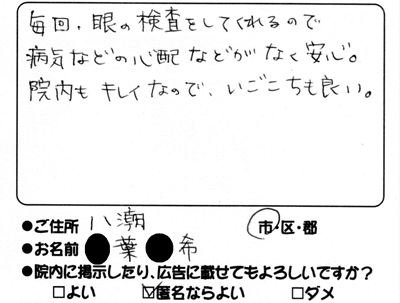 毎回、眼の検査をしてくれるので
病気などの心配などがなく安心。
院内もキレイなので、いごこちも良い。
●ご住所 八潮 市・区・郡
●お名前 ●葉●希
●院内に掲示したり、広告に載せてもよろしいですか?
□よい ☑匿名ならよい □ダメ